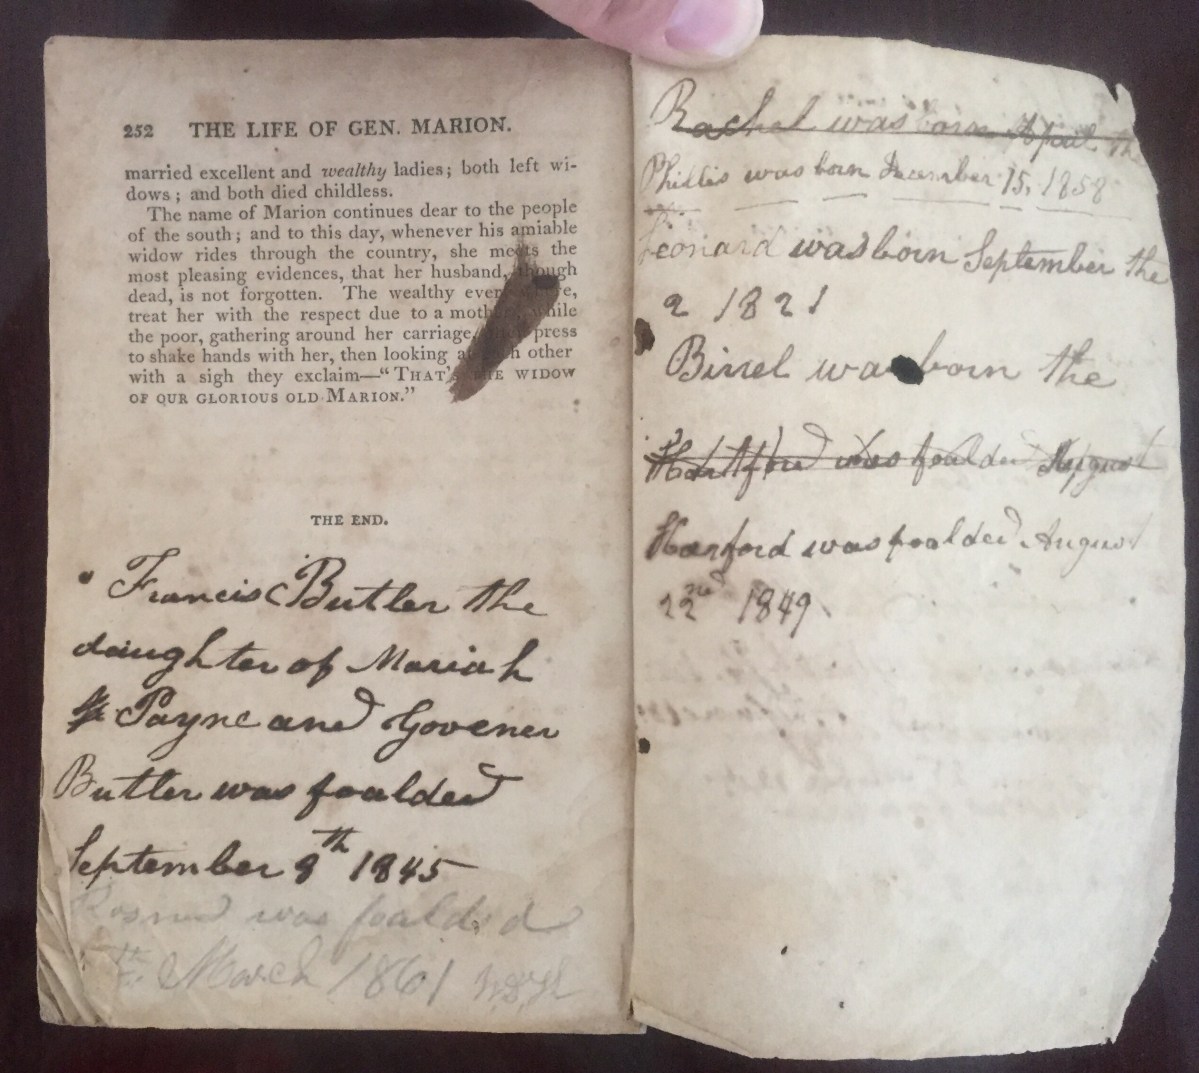 252 THE LIFE OF GEN. MARION.
married excellent and wealthy ladies; both left wi-
dows; and both died childless.
The name of Marion continues dear to the people
of the south; and to this day, whenever his amiable
widow rides through the country, she meets the
most pleasing evidences, that her husband, though
dead, is not forgotten. The wealthy every where,
treat her with the respect due to a mother, while
the poor, gathering around her carriage, press
to shake hands with her, then looking at each other
with a sigh they exclaim—"THAT'S THE WIDOW
OF OUR GLORIOUS OLD MARION."
THE END.
Francis Butler the
daughter of Mariah
Payne and Govener
Butler was foalded
September 8th 1845
was foalded
March 1861
Rachel was born April the
Phillis was born December 15, 1858
Leonard was born September the
2 1821
Birrel was born the
Hartford was foalded August
Harford was foalded August
22nd 1849